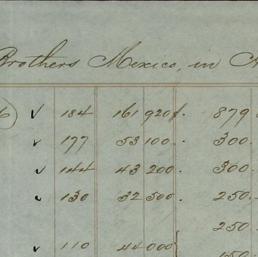 Brothers Mexico, in
6 v 184 161 920 f. 879
v 177 53 100. 300.
v 144 43 200. 300.
v 130 32 500. 250.
250.
v 110 44 000 150.